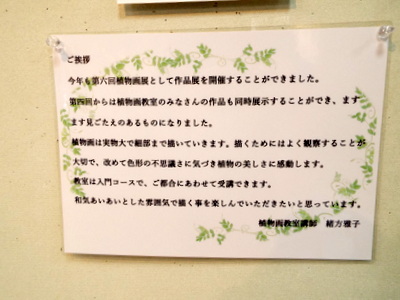 ご挨拶
今年も第六回植物画展として作品展を開催することができました。
第四回からは植物画教室のみなさんの作品も同時展示することができ、ます
ます見ごたえのあるものになりました。
植物画は実物大で細部まで描いていきます。描くためにはよく観察することが
大切で、改めて色形の不思議さに気づき植物の美しさに感動します。
教室は入門コースで、ご都合にあわせて受講できます。
和気あいあいとした雰囲気で描く事を楽しんでいただきたいと思っています。
植物画教室講師　緒方雅子